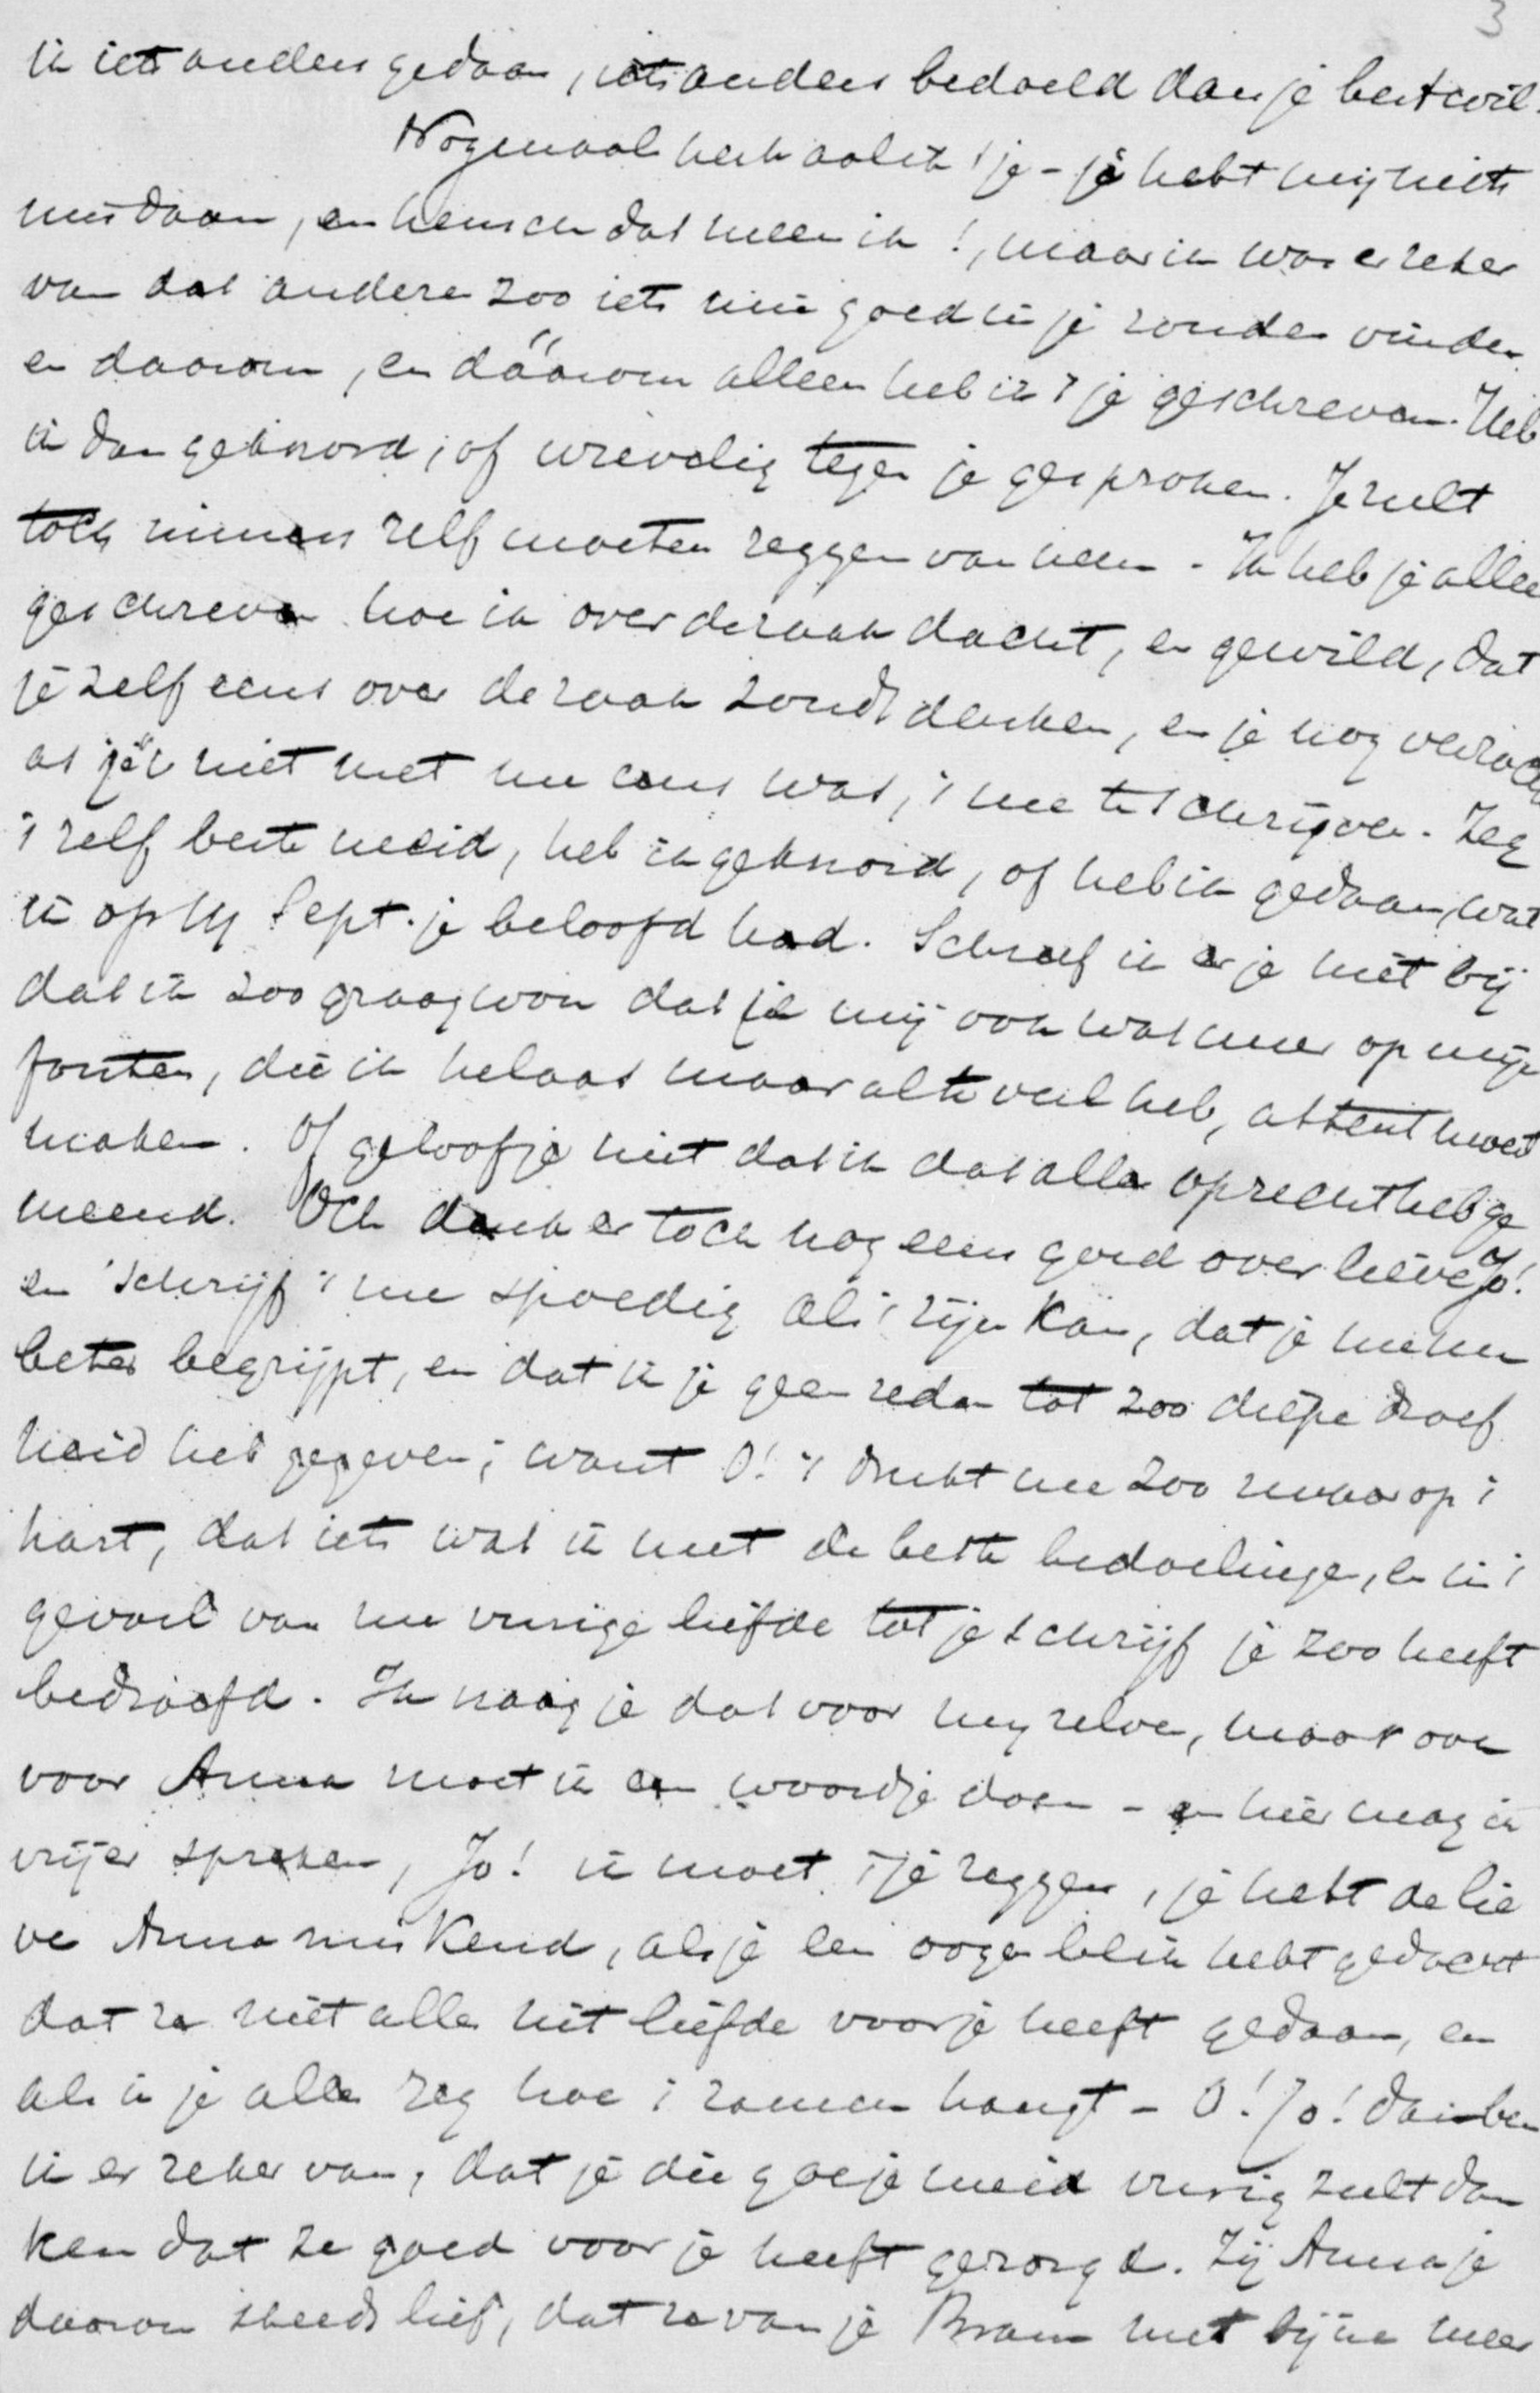 3
ik iets anders gedaan, iets anders bedoeld dan je bestwil.
Nogmaals herhaal ik 't je - je hebt mij niets
misdaan, en heusch dat meen ik!, maar ik was er zeker
van dat andere zoo iets niet goed in je zouden vinden
en daarom, en dáárom alleen heb ik 't je geschreven. Heb
ik dan geknord, of wrevelig tegen je gesproken. Je zult
toch immers zelf moeten zeggen van neen - Ik heb je alleen
geschreven hoe ik over de zaak dacht, en gewild, dat
je zelf eens over de zaak zoudt denken, en je nog verzocht
als je 't niet met me eens was, 't me te schrijven. Zeg
't zelf beste meid, heb ik geknord, of heb ik gedaan, wat
ik op Sept. je beloofd had. Schreef ik er je niet bij
dat ik zoo graag wou dat je mij ook wat meer op mijn
fouten, die ik helaas maar al te veel heb, attent moest
maken. Of geloof je niet dat ik dat alles oprecht heb ge
meend. Och denk er toch nog eens goed over lieve Jo!
en schrijf 't me spoedig als 't zijn kan, dat je me nu
beter begrijpt, en dat ik je geen reden tot zoo diepe droef
heid heb gegeven; want O! 't drukt me zoo zwaar op 't
hart, dat iets wat ik met de beste bedoelingen, en in 't
gevoel van me vurige liefde tot je schrijf je zoo heeft
bedroefd. Ik vraag je dat voor mij zelve, maar ook
voor Anna moet ik een woordje doen - en hier mag ik
vrijer spreken, Jo! ik moet 't je zeggen, je hebt de lie
ve Anna miskend, als je een oogenblik hebt gedacht
dat ze niet alles uit liefde voor je heeft gedaan, en
als ik je alles zeg hoe 't zamen hangt - O! Jo! dan ben
ik er zeker van, dat je die goeje meid vurig zult dan
ken dat ze goed voor je heeft gezorgd. Zij Anna je
daarom steeds lief, dat ze van je Bram met bijna meer